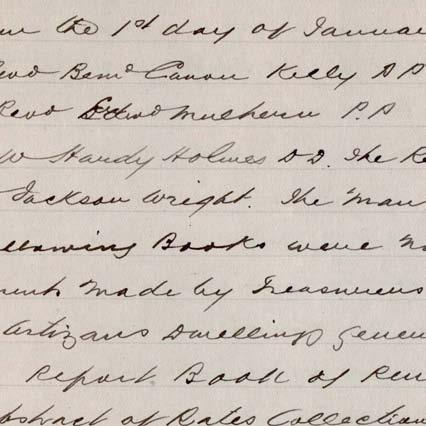 the 1st day of Januar
Revd Bernd Canon Kelly P.P
Revd Edwd Mulhern P.P
W Hardy Holmes D.D. The Re
Jackson Wright. The Man
llowing Books were
ments made by Treasurers
Artizans Dwellings Gener
Report Book of
bstract of Rates Collection